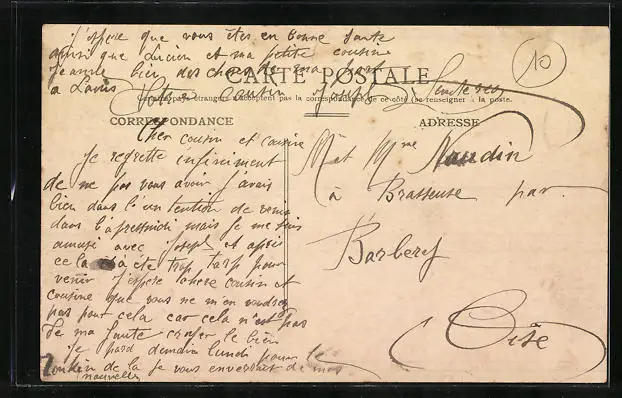 J'espere que vous êtes en bonne sante
ainsi que Lucien et ma petite cousine
bien des choses de ma part
a Louis
Votre Cousin Joseph
CARTE POSTALE
Certains pays étrangers n'acceptent pas la correspondance de ce côté (se renseigner à la poste.
10
CORRESPONDANCE
ADRESSE
Cher cousin et cousine
Je regrette infiniment
de ne pas vous avoir j'avais
bien dans l'intention de venir
dans l'apresmidi mais je me suis
amusé avec Joseph et après
cela à été trop tard pour
venir J'espère chere cousin et
cousine que vous ne m'en voudrez
pas pour cela car cela n'est pas
de ma faute croyer le bien
Je pard demain lundi pour le
Tonkin de la je vous enverrai de mes
nouvelles
M et Mme Naudin
à Brasseuse par
Barbery
Oise